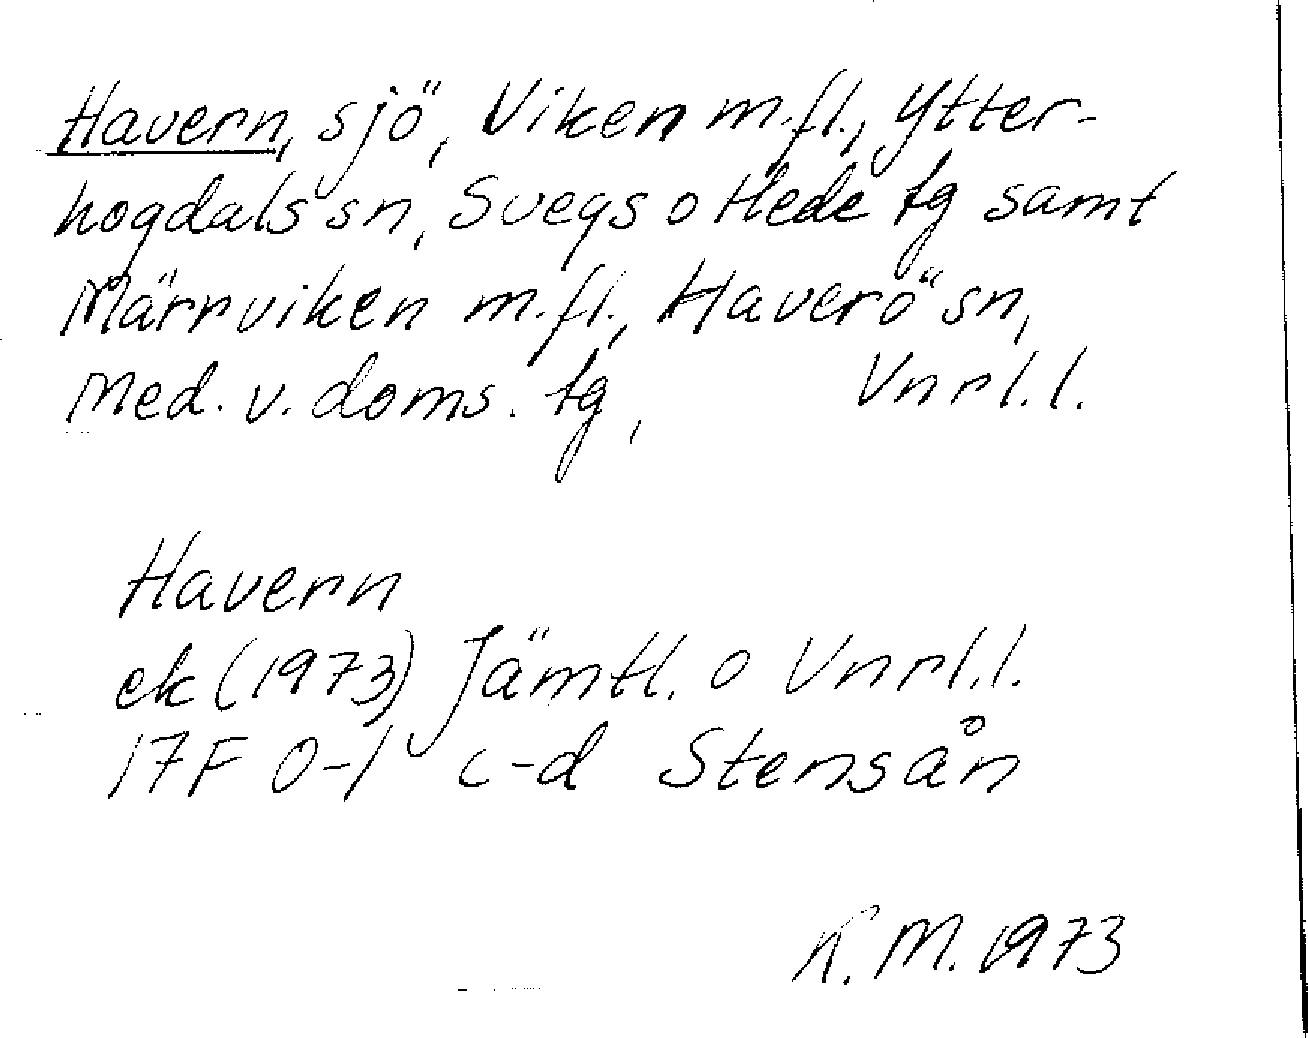 Havern, sjö, Viken m.fl., Ytter-
hogdals sn, Svegs o Hede tg samt
Märrviken m.fl., Haverö sn,
Med. v. doms. tg, Vnrl.l.
Havern
ek (1973) Jämtl. o Vnrl.l.
17F 0-1 c-d Stensån
K.M. 1973